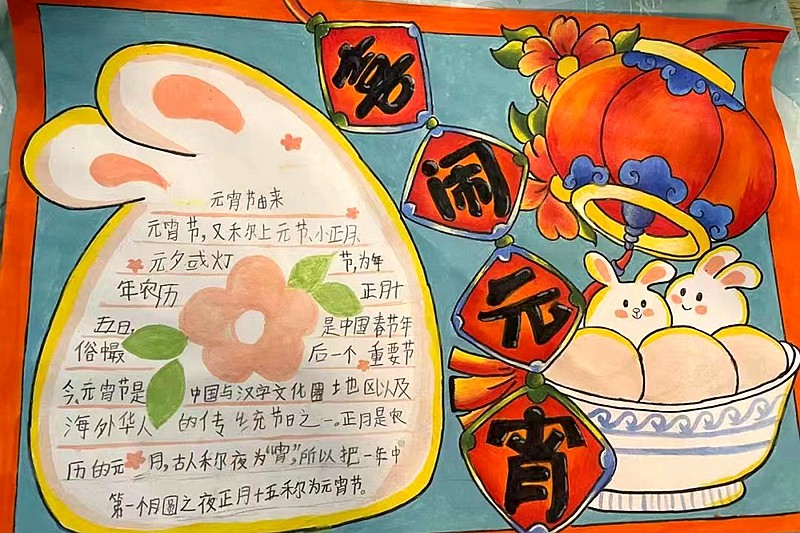 喜闹元宵
元宵节由来
元宵节，又称上元节、小正月、
元夕或灯节，为年
年农历正月十
五日，是中国春节年
俗中最后一个重要节
令，元宵节是中国与汉字文化圈地区以及
海外华人的传统节日之一。正月是农
历的元月，古人称夜为“宵”，所以把一年中
第一个月圆之夜正月十五称为元宵节。